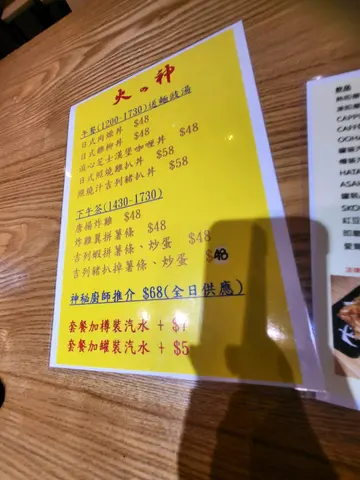 火の神
午餐(1200-1730)送麵豉湯
日式肉燥丼 $48
日式雞柳丼 $48
流心芝士漢堡咖喱丼 $58
日式照燒雞扒丼 $58
照燒汁吉列豬扒丼 $58
下午茶(1430-1730)
唐揚炸雞 $48
炸雞翼拼薯條 $48
吉列蝦拼薯條、炒蛋 $48
吉列豬扒掉薯條、炒蛋 $48
神秘廚師推介 $68(全日供應)
套餐加樽裝汽水 +
套餐加罐裝汽水 + $5
CAPP
CAFF
OOH
HATA
ASA
SKO